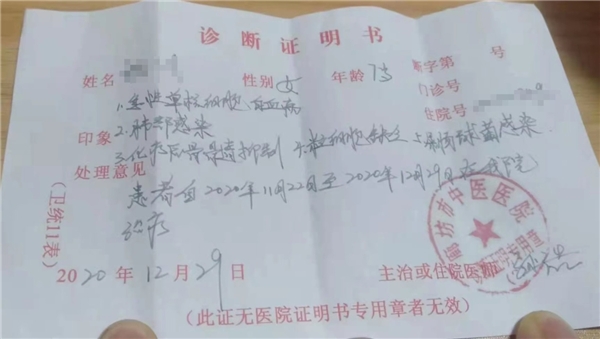 诊断证明书
姓名 性别 女 年龄 字第 号
门诊号
1.急性单核细胞白血病 住院号
印象 2.肺部感染
3.化疗后骨髓抑制 4.粒细胞缺乏 5.肠球菌感染
处理意见
患者自2020年11月22日至2020年12月29日在我院
治疗
(卫统11表)
廊坊市中医医院
2020年12月29日 主治或住院医师
(此证无医院证明书专用章者无效)